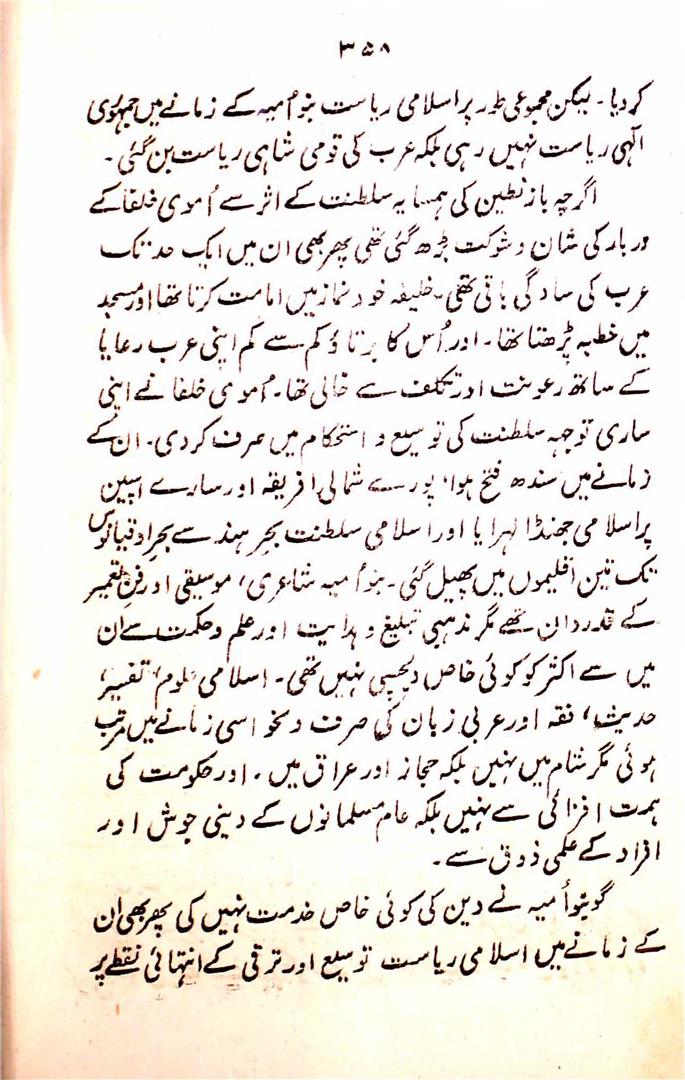 ۳۵۸
کر دیا۔ لیکن مجموعی طور پر اسلامی ریاست بنو اُمیہ کے زمانے میں جمہوری
الٰہی ریاست نہیں رہی بلکہ عرب کی قومی شاہی ریاست بن گئی۔
اگرچہ بازنطین کی ہمسایہ سلطنت کے اثر سے اُموی خلفا کے
دربار کی شان و شوکت بڑھ گئی تھی پھر بھی ان میں ایک حد تک
عرب کی سادگی باقی تھی۔ خلیفہ خود نماز میں امامت کرتا تھا اور مسجد
میں خطبہ پڑھتا تھا۔ اور اُس کا برتاؤ کم سے کم اپنی عرب رعایا
کے ساتھ رعونت اور تکلف سے خالی تھا۔ اُموی خلفا نے اپنی
ساری توجہہ سلطنت کی توسیع و استحکام میں صرف کردی۔ ان کے
زمانے میں سندھ فتح ہوا، پورے شمالی افریقہ اور سارے اسپین
پر اسلامی جھنڈا لہرایا اور اسلامی سلطنت بحر ہند سے بحر اوقیانوس
تک تین اقلیموں میں پھیل گئی۔ بنو اُمیہ شاعری، موسیقی اور فنِ تعمیر
کے قدردان تھے مگر مذہبی تبلیغ و ہدایت اور علم و حکمت سے ان
میں سے اکثر کو کوئی خاص دلچسپی نہیں تھی۔ اسلامی علوم، تفسیر،
حدیث، فقہ اور عربی زبان کی صرف و نحو اسی زمانے میں مرتب
ہوئی مگر شام میں نہیں بلکہ حجاز اور عراق میں۔ اور حکومت کی
ہمت افزائی سے نہیں بلکہ عام مسلمانوں کے دینی جوش اور
افراد کے علمی ذوق سے۔
گو بنو اُمیہ نے دین کی کوئی خاص خدمت نہیں کی پھر بھی ان
کے زمانے میں اسلامی ریاست توسیع اور ترقی کے انتہائی نقطے پر